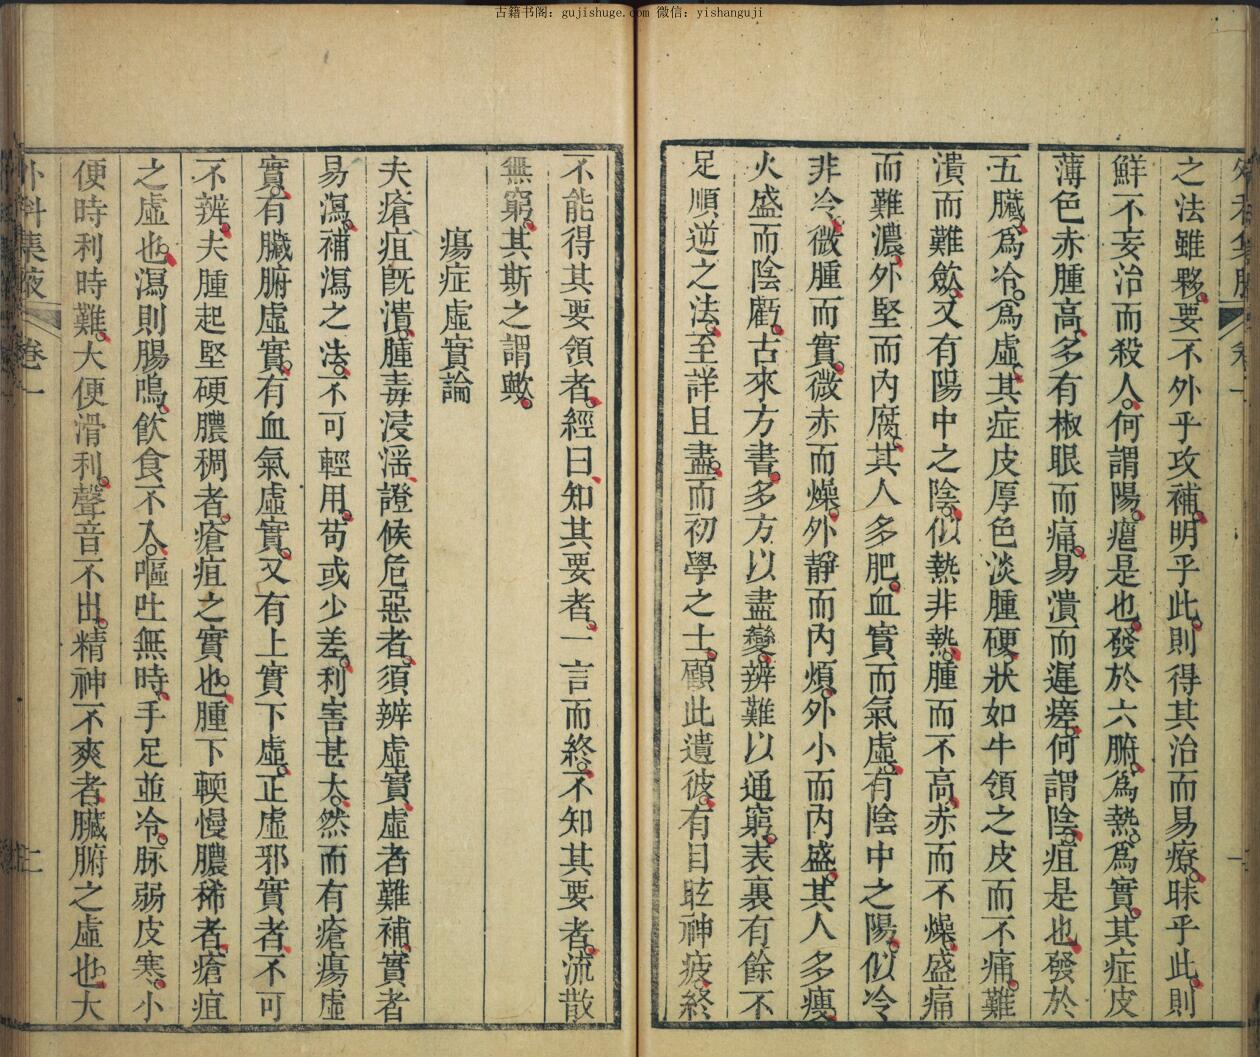 古籍书阁：gujishuge.com 微信：yishanguji
之法雖夥。要不外乎攻補。明乎此。則得其治而易療。昧乎此。則
鮮不妄治而殺人。何謂陽。瘡是也。發於六腑。爲熱。爲實。其症皮
薄色赤腫高。多有椒眼而痛。易潰而遲瘥。何謂陰。疽是也。發於
五臟。爲冷。爲虛。其症皮厚色淡腫硬。狀如牛領之皮而不痛。難
潰而難歛。又有陽中之陰。似熱非熱。腫而不高。赤而不燥。盛痛
而難濃。外堅而內腐。其人多肥。血實而氣虛。有陰中之陽。似冷
非冷。微腫而實。微赤而燥。外靜而內煩。外小而內盛。其人多瘦。
火盛而陰虧。古來方書。多方以盡變。辨難以通窮。表裏有餘不
足順逆之法。至詳且盡。而初學之士。顧此遺彼。有目眩神疲。終
不能得其要領者。經曰。知其要者。一言而終。不知其要者。流散
無窮。其斯之謂歟。
瘍症虛實論
夫瘡疽旣潰。腫毒浸淫。證候危惡者。須辨虛實。虛者難補。實者
易瀉。補瀉之法。不可輕用。苟或少差。利害甚大。然而有瘡瘍虛
實。有臟腑虛實。有血氣虛實。又有上實下虛。正虛邪實者。不可
不辨。夫腫起堅硬膿稠者。瘡疽之實也。腫下輭慢膿稀者。瘡疽
之虛也。瀉則腸鳴。飲食不入。嘔吐無時。手足並冷。脉弱皮寒。小
便時利時難。大便滑利。聲音不出。精神不爽者。臟腑之虛也。大
外科集腋 卷一 二